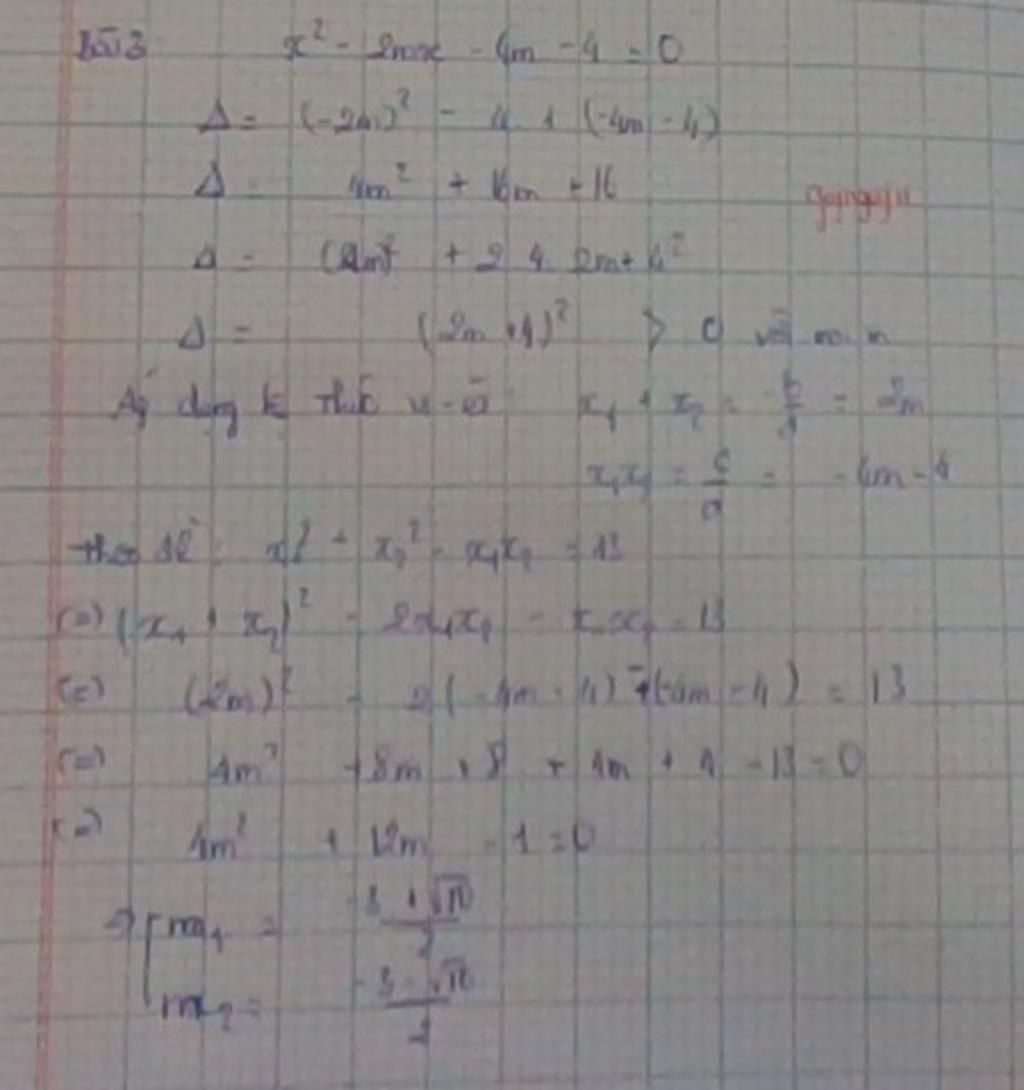 Bài 3 x² - 2mx - 4m - 4 = 0
Δ = (-2m)² - 4 . 1 (-4m - 4)
Δ = 4m² + 16m + 16
Δ = (2m)² + 2 . 4 . 2m + 4²
Δ = (2m + 4)² > 0 với m
Áp dụng thức vi-ét x₁ + x₂ = b = 2m
x₁x₂ = c/a = -4m - 4
theo đề x₁² + x₂² - x₁x₂ = 13
(=) (x₁ + x₂)² - 2x₁x₂ - x₁x₂ = 13
(=) (2m)² - 2(-4m - 4) + (-4m - 4) = 13
(=) 4m² + 8m + 8 + 4m + 4 - 13 = 0
(=) 4m² + 12m - 1 = 0
=> m₁ = -3 + √10 / 2
m₂ = -3 - √10 / 2